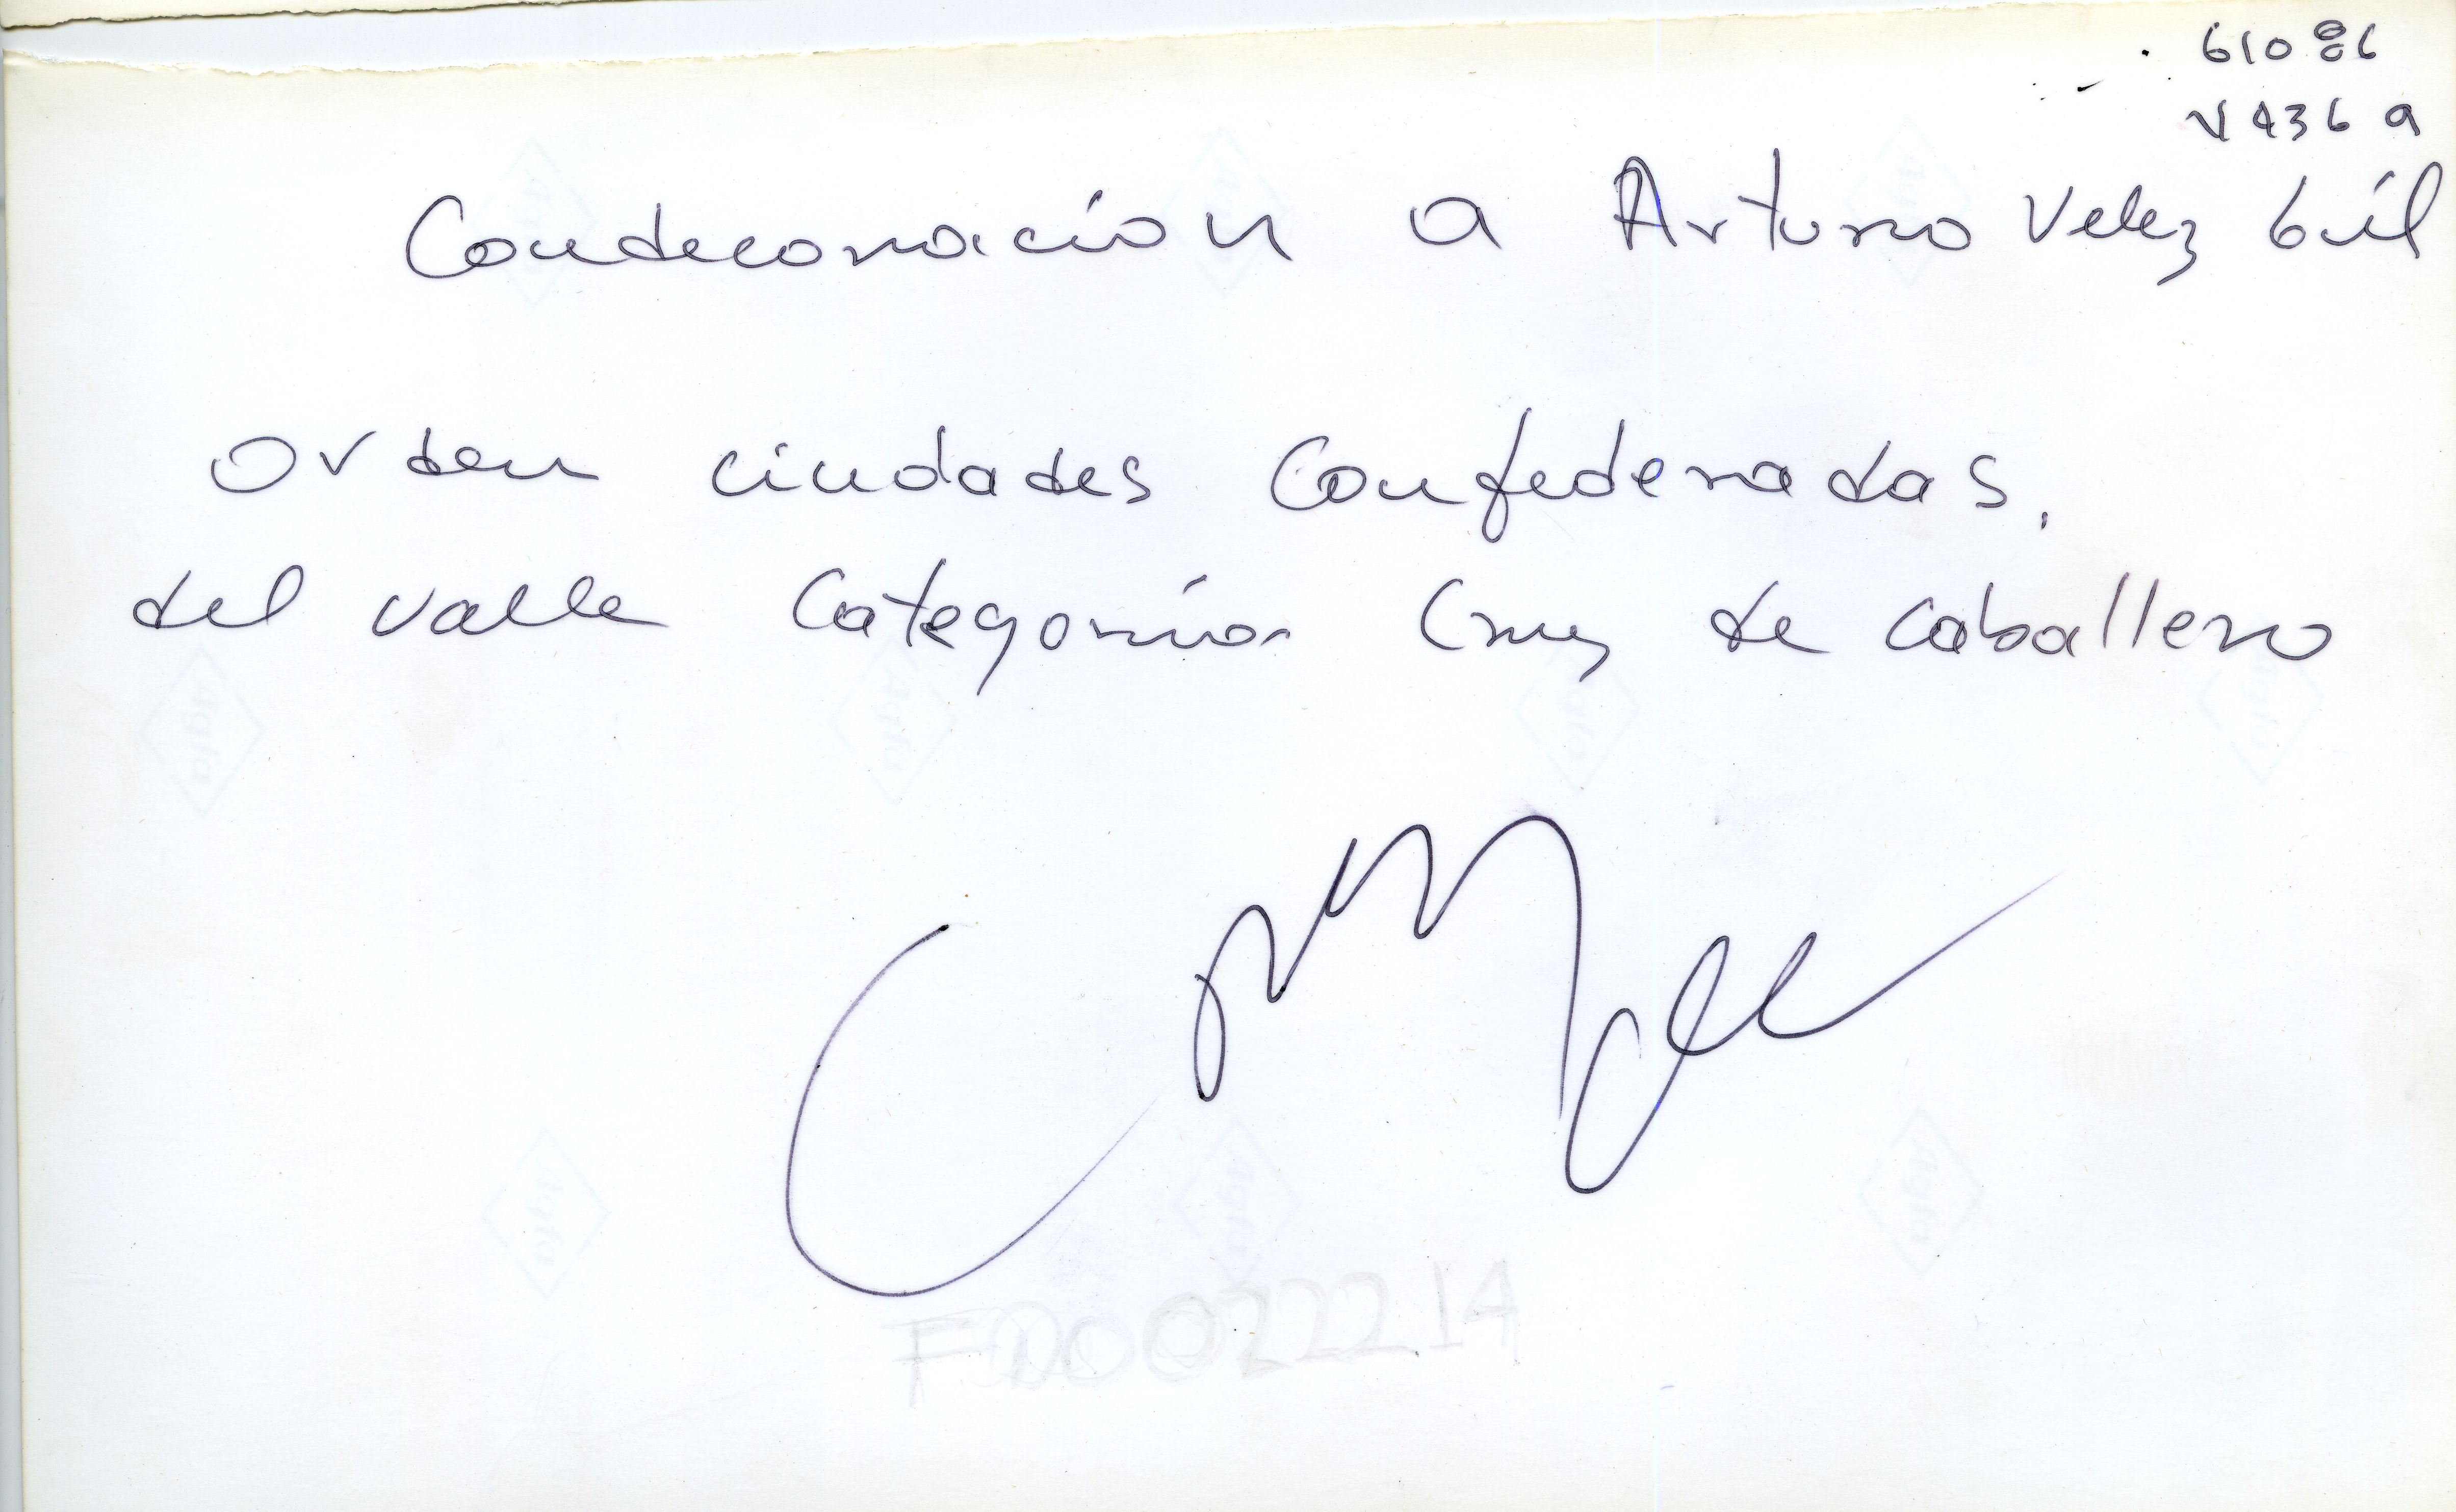 61086
V436a
Condecoración a Arturo Velez Gil
Orden ciudades Confederadas,
del valle Categoría Cruz de Caballero
FD002221A